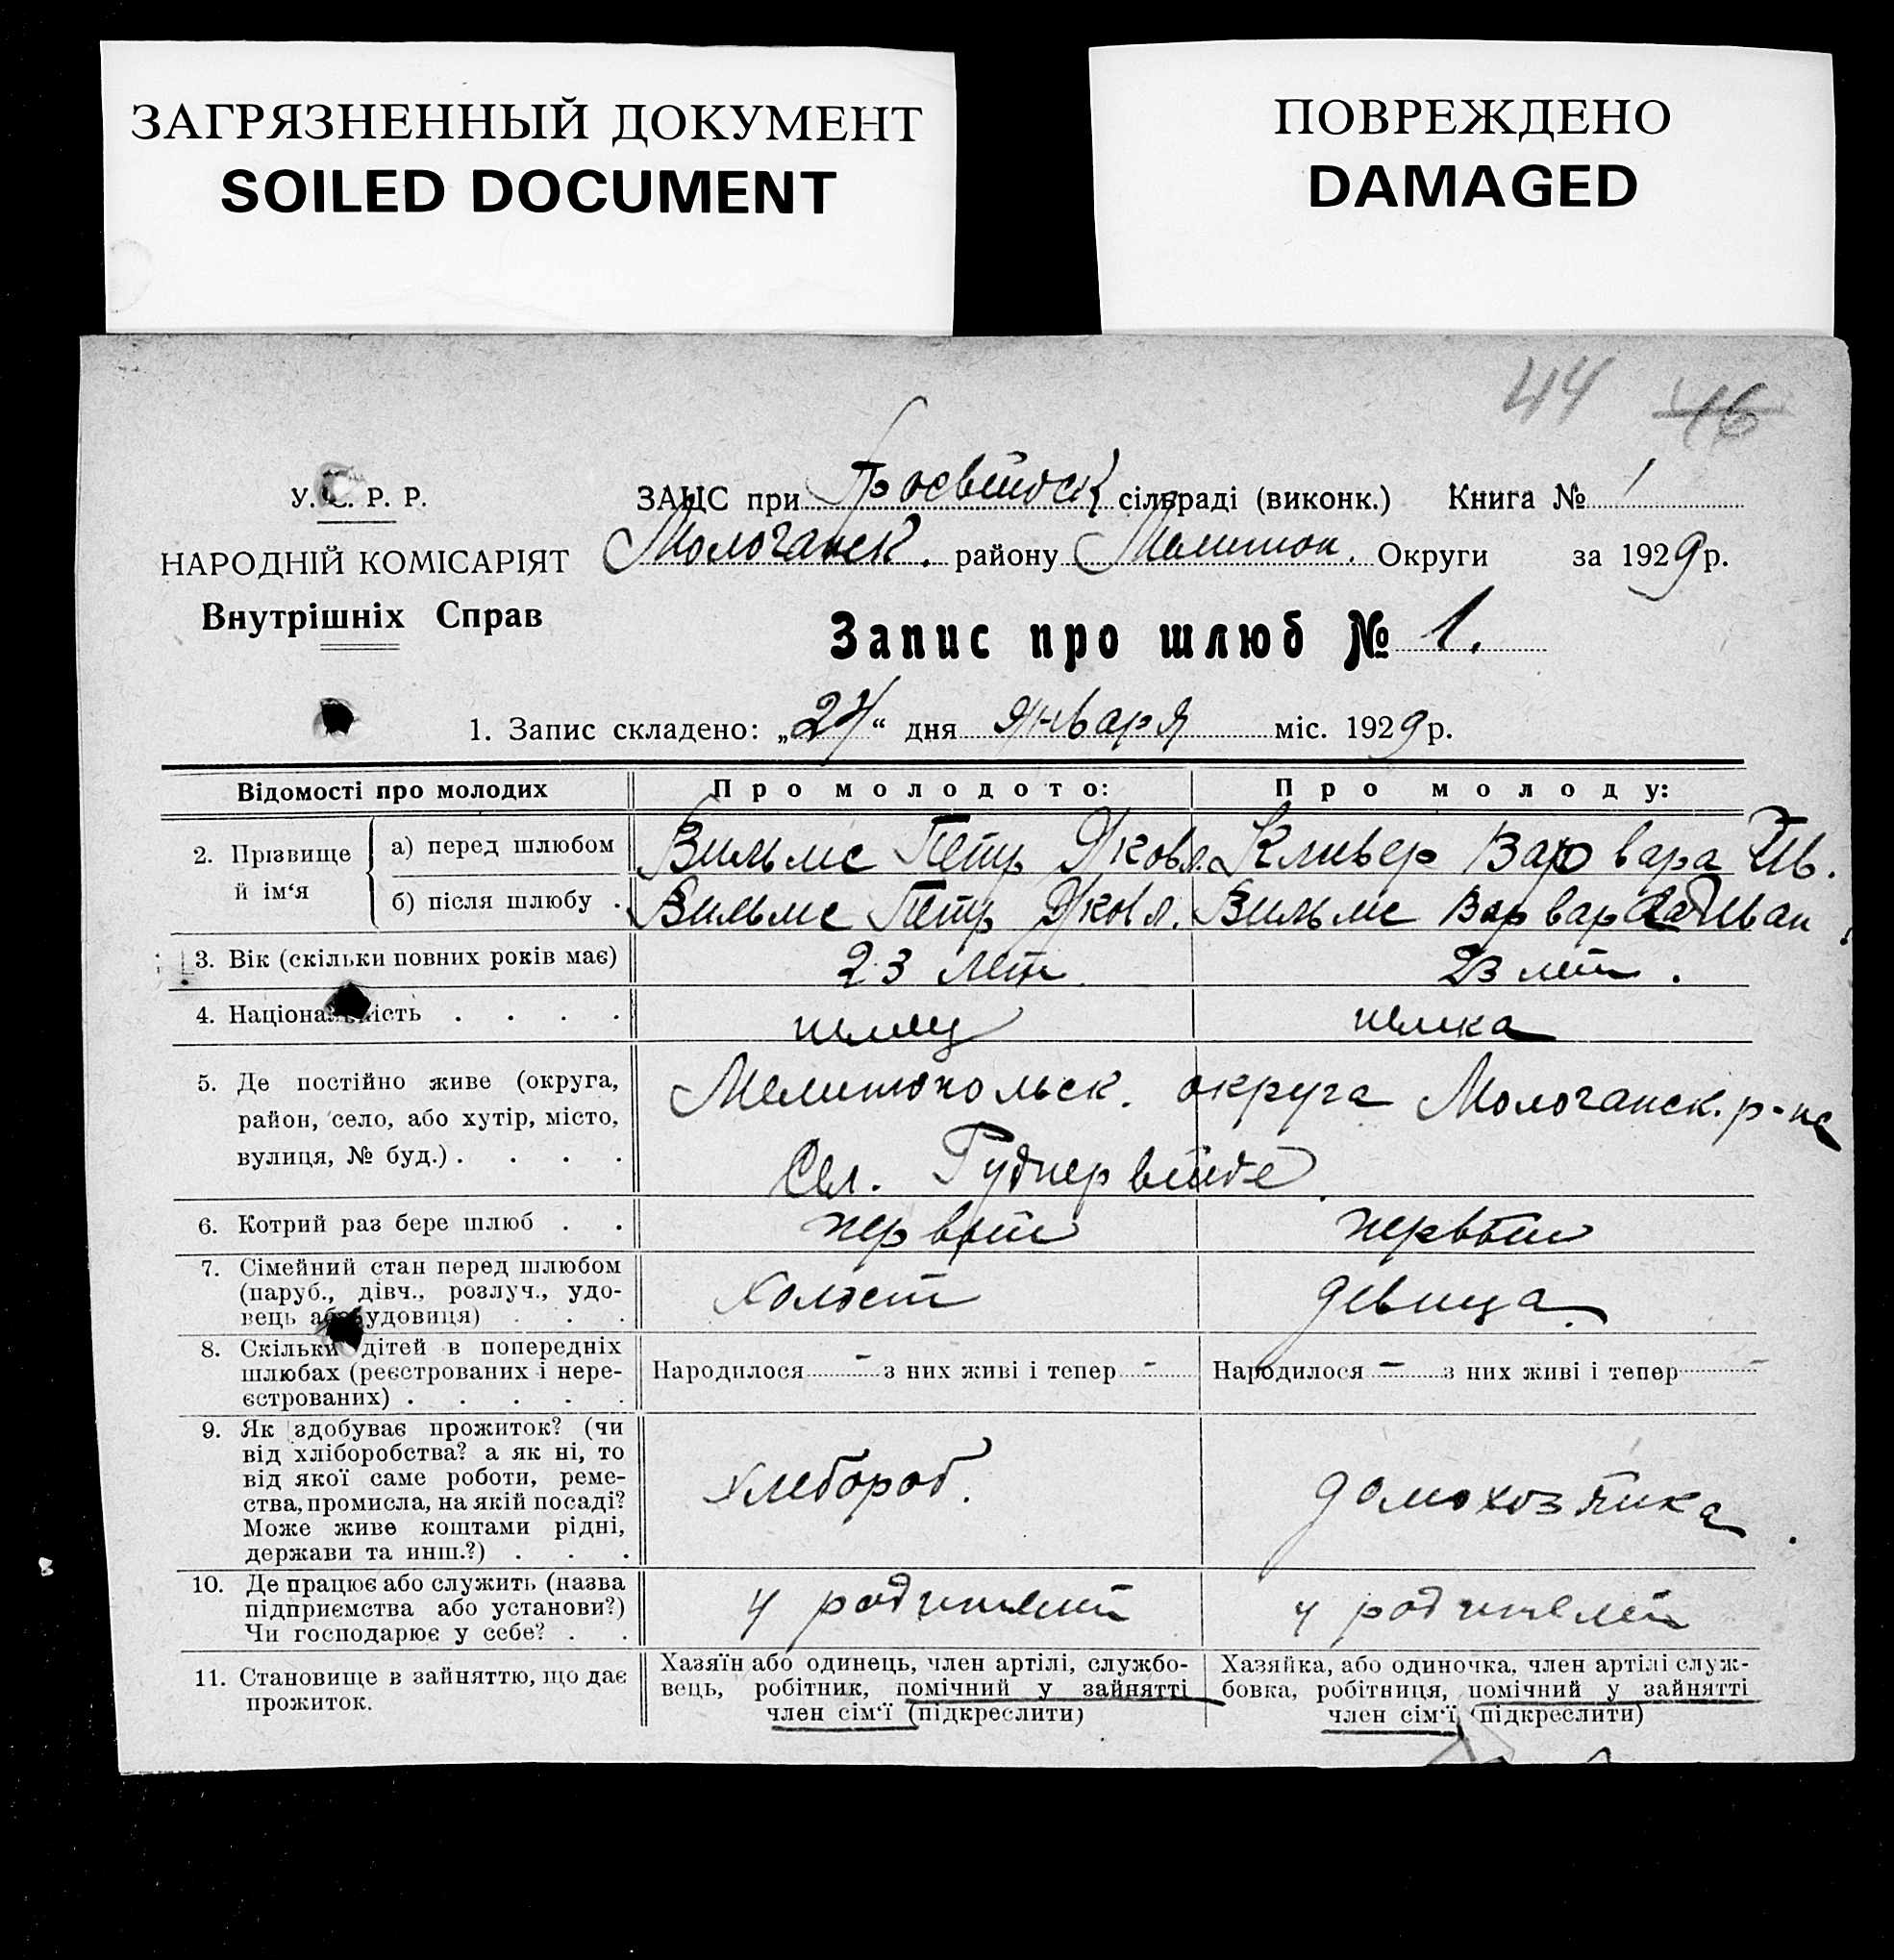 ЗАГРЯЗНЕННЫЙ ДОКУМЕНТ
SOILED DOCUMENT
ПОВРЕЖДЕНО
DAMAGED
44 46
У. С. Р. Р.
НАРОДНІЙ КОМІСАРІЯТ
Внутрішніх Справ
ЗАЦС при сільраді (виконк.) Книга № 1
Молочанск. району Мелитоп. Округи за 1929 р.
Запис про шлюб № 1.
1. Запис складено: „24“ дня января міс. 1929 р.
Відомості про молодих
Про молодого:
Про молоду:
2. Прізвище й ім‘я
а) перед шлюбом
Вильмс Петр Яковл.
Кливер Варвара Ив.
б) після шлюбу .
Вильмс Петр Яковл.
Вильмс Варвара Иван
3. Вік (скільки повних років має)
23 лет
23 лет.
4. Національність . . . .
немец
немка
5. Де постійно живе (округа,
район, село, або хутір, місто,
вулиця, № буд.) . . . .
Мелитопольск. округа Молочанск. р-на
Сел. Руднервейде
6. Котрий раз бере шлюб . .
первый
первый
7. Сімейний стан перед шлюбом
(паруб., дівч., розлуч., удо-
вець або удовиця) . . .
холост
девица
8. Скільки дітей в попередніх
шлюбах (реєстрованих і нере-
єстрованих) . . . . .
Народилося - з них живі і тепер -
Народилося - з них живі і тепер -
9. Як здобуває прожиток? (чи
від хліборобства? а як ні, то
від якої саме роботи, реме-
ства, промисла, на якій посаді?
Може живе коштами рідні,
держави та инш.?) . . .
хлебороб.
домохозяйка.
10. Де працює або служить (назва
підприємства або установи?)
Чи господарює у себе? . .
у родителей
у родителей
11. Становище в зайняттю, що дає
прожиток.
Хазяїн або одинець, член артілі, службо-
вець, робітник, помічний у зайнятті
член сім‘ї (підкреслити)
Хазяйка, або одиночка, член артілі служ-
бовка, робітниця, помічний у зайнятті
член сім‘ї (підкреслити)